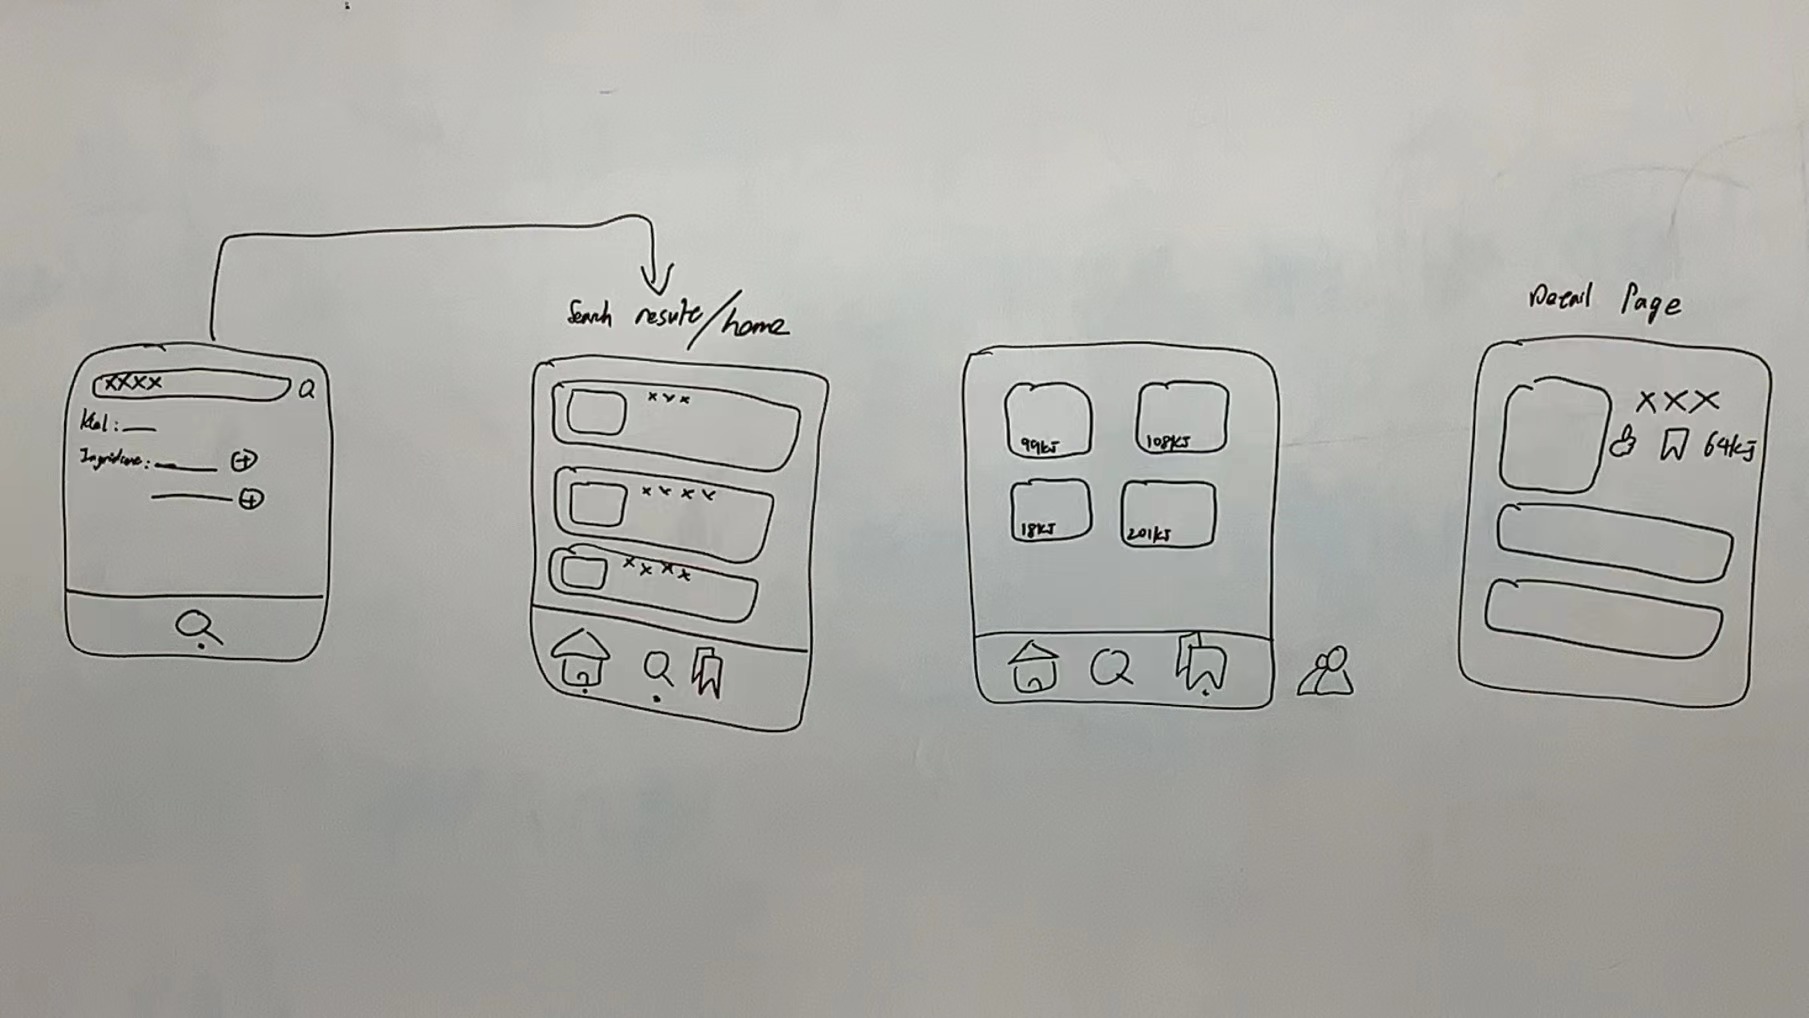 XXXX
Kcal:
Search result/home
xxx
xxxx
xxxx
99kJ
108kJ
18kJ
201kJ
Detail Page
XXX
64kJ